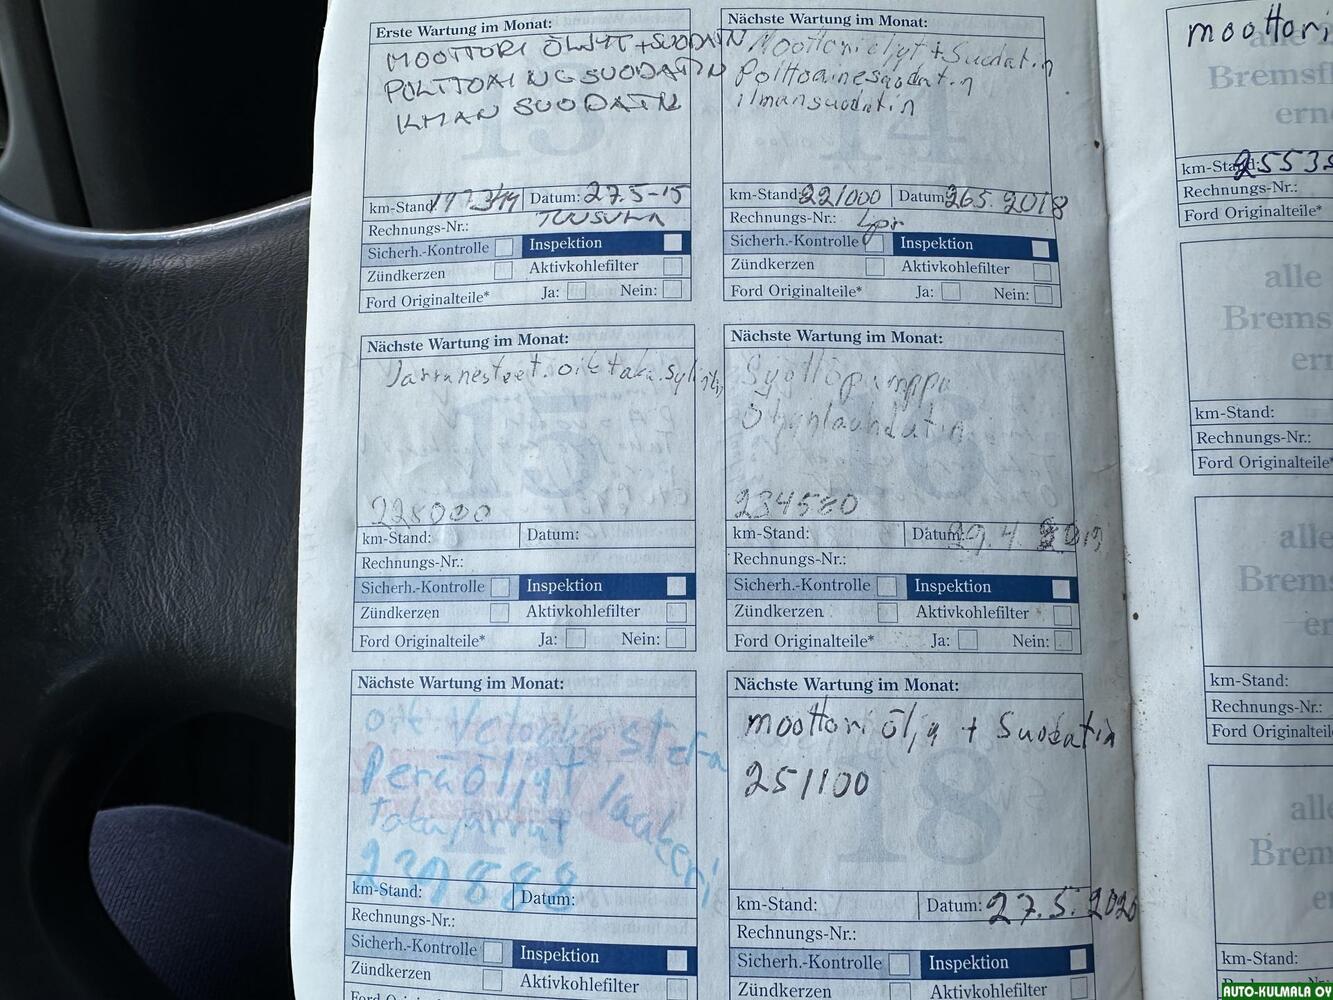 Erste Wartung im Monat:
MOOTTORI ÖLJYT+SUODATIN
POLTTOAINESUODATIN
ILMAN SUODATIN
13
km-Stand:
Datum: 27.5-15
Rechnungs-Nr.: TUUSULA
Sicherh.-Kontrolle Inspektion
Zündkerzen Aktivkohlefilter
Ford Originalteile* Ja: Nein:
Nächste Wartung im Monat:
Moottoriöljyt + Suodatin
Polttoainesuodatin
ilmansuodatin
14
km-Stand: 221000 Datum: 26.5.2018
Rechnungs-Nr.:
Sicherh.-Kontrolle Inspektion
Zündkerzen Aktivkohlefilter
Ford Originalteile* Ja: Nein:
Nächste Wartung im Monat:
Jarrunesteet. oik taka.
15
228000
km-Stand: Datum:
Rechnungs-Nr.:
Sicherh.-Kontrolle Inspektion
Zündkerzen Aktivkohlefilter
Ford Originalteile* Ja: Nein:
Nächste Wartung im Monat:
Syöttöpumppu
Öljynlauhdutin
16
234500
km-Stand: Datum: 29.4.2019
Rechnungs-Nr.:
Sicherh.-Kontrolle Inspektion
Zündkerzen Aktivkohlefilter
Ford Originalteile* Ja: Nein:
Nächste Wartung im Monat:
oik
Peräöljyt laakeri
Takajarrut
239888
km-Stand: Datum:
Rechnungs-Nr.:
Sicherh.-Kontrolle Inspektion
Zündkerzen Aktivkohlefilter
Nächste Wartung im Monat:
moottori öljy + Suodatin
251100
18
km-Stand: Datum: 27.5.2020
Rechnungs-Nr.:
Sicherh.-Kontrolle Inspektion
Zündkerzen Aktivkohlefilter
moottori
alle
Bremsfl
ern
km-Stand: 25535
Rechnungs-Nr.:
Ford Originalteile*
alle
Brems
er
km-Stand:
Rechnungs-Nr.:
Ford Originalteile*
alle
Brems
er
km-Stand:
Rechnungs-Nr.:
Ford Originalteile
all
Brem
e
km-Stand:
AUTO-KULMALA OY